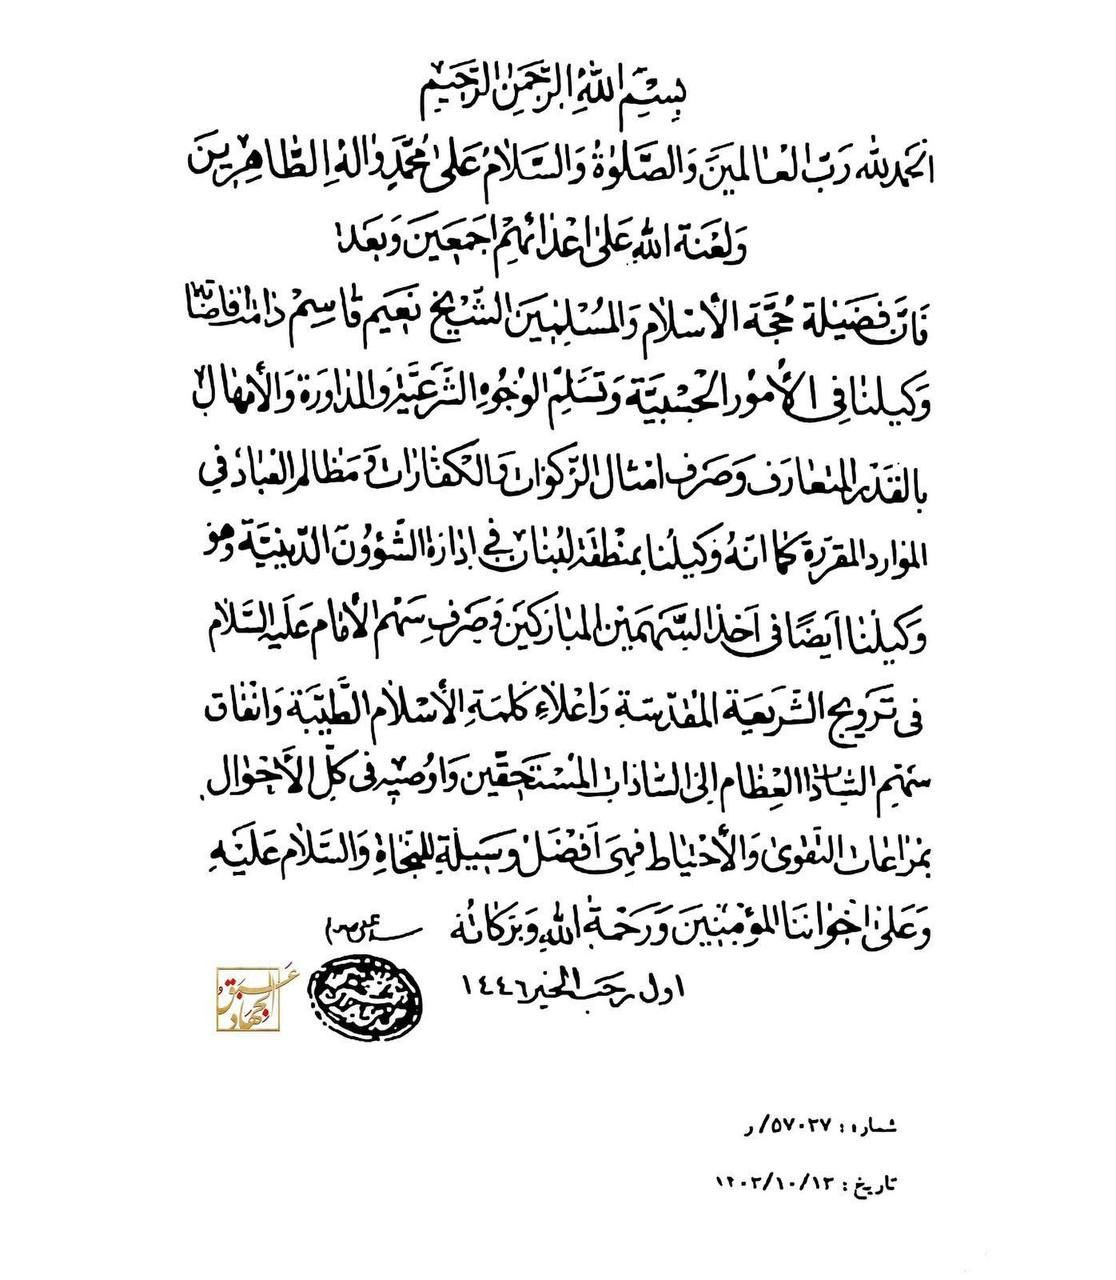 بِسْمِ اللهِ الرَّحْمَنِ الرَّحِيمِ
الحمد لله رَبِّ العالمينَ وَالصَّلوٰةُ وَالسَّلامُ عَلىٰ مُحَمَّدٍ وَالهِ الطَّاهِرينَ
وَلَعْنَة اللهِ عَلىٰ اعْدائهِم اجمَعينَ وَبَعدُ
فَانَّ فَضيلة حُجَّة الأسْلامِ وَالمُسْلِمينَ الشَّيْخ نَعيم قاسِمْ دامَت افاضاته
وَكيلنا فِى الأُموُر الحِسْبيَّة وَتَسَلّمِ الوُجُوهِ الشَّرعيَّة وَالمداورَة وَالأمهال
بالقَدْرِ المتعارَف وَصَرف امْثال الزَّكوات وَالكفّارات وَمَظالم العباد فِي
الموارد المقرّرة كما انّهُ وَكيلُنا بمنطقة لبُنان في ادارَة الشّؤُونَ الدّينيّة وَهُو
وَكيلنا ايضًا فى اَخذ السَّهمَين المباركَينِ وَصَرفِ سَهْم الأمام عَلَيهِ السَّلام
فى تَرويج الشّريعَة المُقدّسَة وَاعْلاءِ كَلمَةِ الأسْلام الطَّيّبَة وَانْفاق
سَهْمِ السّادات العِظام اِلى السّادات المُسْتَحِقّين وَاوُصيْهِ فى كلّ الأحْوال
بمُراعات التَّقوىٰ وَالأحْتياط فَهِىَ اَفضَل وَسيلَةٍ للنجاة وَالسَّلام عَلَيْهِ
وَعَلىٰ اخْواننَا المُؤمنينَ وَرَحمَة اللهِ وَبَركاتُه
اول رجب الخير ١٤٤٦
عشق الجهاد
شماره : ٥٧٠٢٧/ر
تاريخ : ١٤٠٣/١٠/١٣